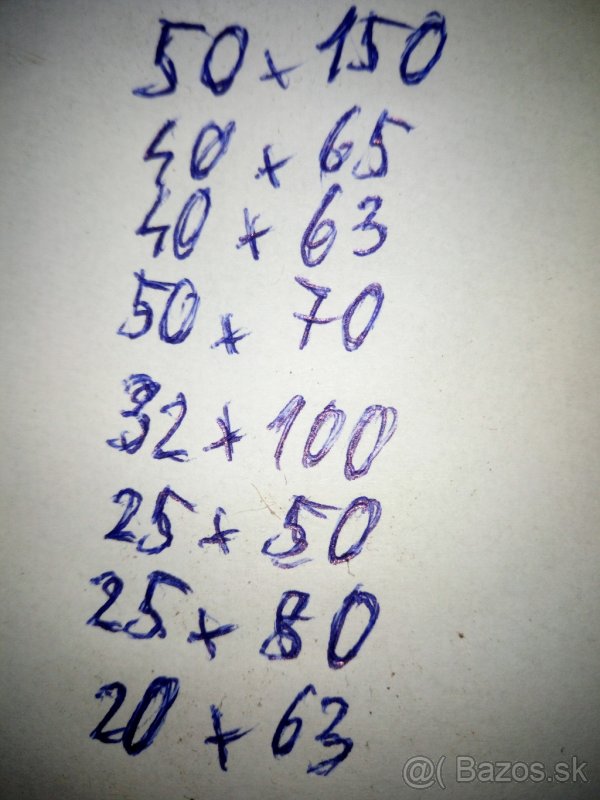 50 x 150
40 x 65
40 x 63
50 x 70
32 x 100
25 x 50
25 x 80
20 x 63
@( Bazos.sk